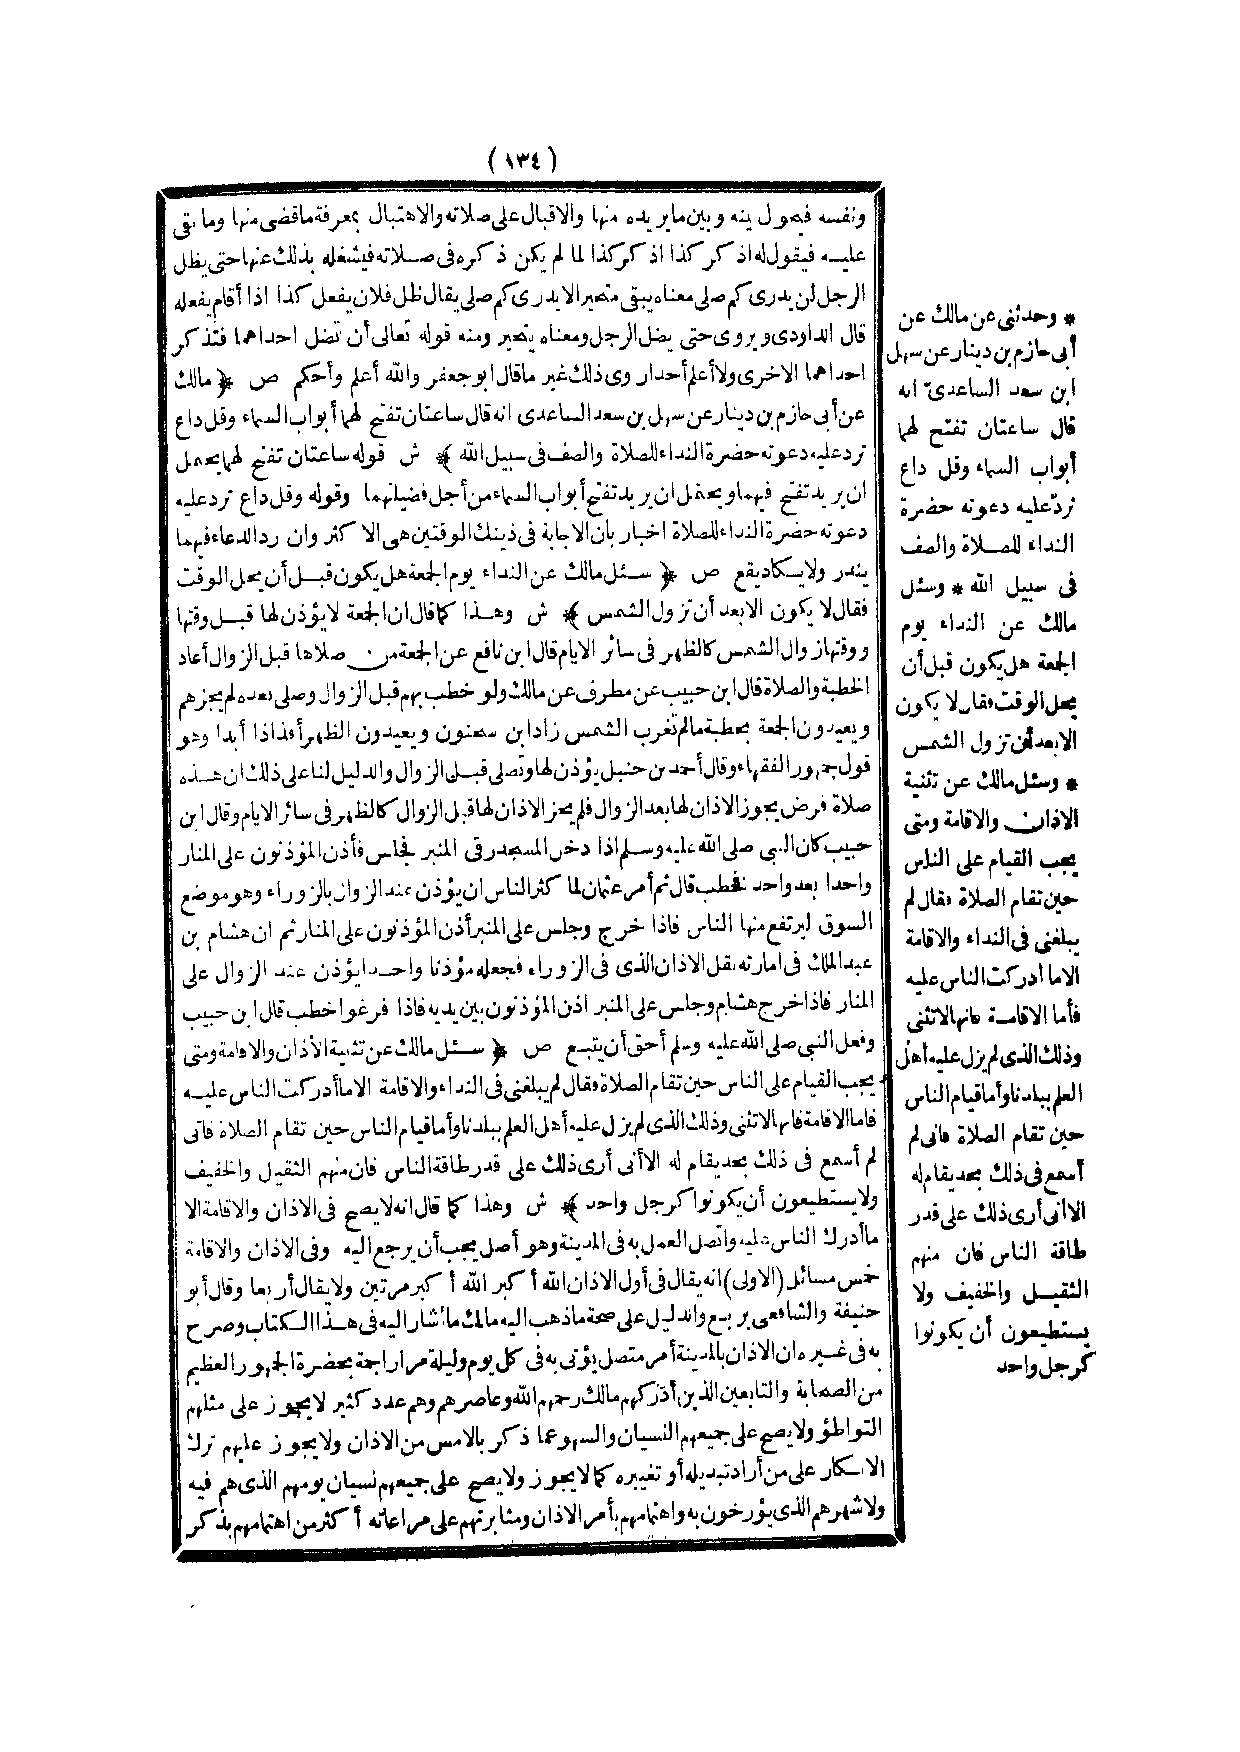 (١٣٤)
ونفسه فيحول بينه وبين ما يريده منها والاقبال على صلاته والاهتبال بمعرفة ما قضى منها وما بقى
عليه فيقول له اذ كر كذا اذ كر كذا لما لم يكن ذكره فى صلاته فيشغله بذلك عنها حتى يظل
الرجل لن يدرى كم صلى معناه يبقى متحيرا لا يدرى كم صلى يقال ظل فلان يفعل كذا اذا أقام يفعله
قال الداودى ويروى حتى يضل الرجل ومعناه يتحير ومنه قوله تعالى أن تضل احداهما فتذكر
احداهما الاخرى ولا أعلم أحدا روى ذلك غير ما قال ابو جعفر والله أعلم وأحكم ص ﴿ مالك
عن أبى حازم بن دينار عن سهل بن سعد الساعدى انه قال ساعتان تفتح لهما أبواب السماء وقل داع
ترد عليه دعوته حضرة النداء للصلاة والصف فى سبيل الله ﴾ ش قوله ساعتان تفتح لهما يحتمل
ان يريد تفتح فيهما ويحتمل ان يريد تفتح أبواب السماء من أجل فضيلتهما وقوله وقل داع ترد عليه
دعوته حضرة النداء للصلاة اخبار بان الاجابة فى ذينك الوقتين هى الاكثر وان رد الدعاء فيهما
يندر ولا يكاد يقع ص ﴿ سئل مالك عن النداء يوم الجمعة هل يكون قبل أن يحل الوقت
فقال لا يكون الا بعد أن تزول الشمس ﴾ ش وهذا كما قال ان الجمعة لا يؤذن لها قبل وقتها
ووقتها زوال الشمس كالظهر فى سائر الايام قال ابن نافع عن الجمعة من صلاها قبل الزوال أعاد
الخطبة والصلاة قال ابن حبيب عن مطرف عن مالك ولو خطب بهم قبل الزوال وصلى بعده لم يجزهم
ويعيدون الجمعة بخطبة ما لم تغرب الشمس زاد ابن سحنون ويعيدون الظهر أفذاذا أبدا وهو
قول جمهور الفقهاء وقال أحمد بن حنبل يؤذن لها وتصلى قبل الزوال والدليل لنا على ذلك ان هذه
صلاة فرض يجوز الاذان لها بعد الزوال فلم يجز الاذان لها قبل الزوال كالظهر فى سائر الايام وقال ابن
حبيب كان النبى صلى الله عليه وسلم اذا دخل المسجد رقى المنبر فجلس فأذن المؤذنون على المنار
واحدا بعد واحد فخطب قال ثم أمر عثمان لما كثر الناس ان يؤذن عند الزوال بالزوراء وهو موضع
السوق ليرتفع منها الناس فاذا خرج وجلس على المنبر أذن المؤذنون على المنار ثم ان هشام بن
عبد الملك فى امارته نقل الاذان الذى فى الزوراء فجعله مؤذنا واحدا يؤذن عند الزوال على
المنار فاذا خرج هشام وجلس على المنبر اذن المؤذنون بين يديه فاذا فرغوا خطب قال ابن حبيب
وفعل النبى صلى الله عليه وسلم أحق أن يتبع ص ﴿ سئل مالك عن تثنية الأذان والاقامة ومتى
يجب القيام على الناس حين تقام الصلاة فقال لم يبلغنى فى النداء والاقامة الا ما أدركت الناس عليه
فاما الاقامة فانها لا تثنى وذلك الذى لم يزل عليه أهل العلم ببلدنا وأما قيام الناس حين تقام الصلاة فانى
لم أسمع فى ذلك بحد يقام له الا أنى أرى ذلك على قدر طاقة الناس فان منهم الثقيل والخفيف
ولا يستطيعون أن يكونوا كرجل واحد ﴾ ش وهذا كما قال انه لا يصح فى الاذان والاقامة الا
ما أدرك الناس عليه واتصل العمل به فى المدينة وهو أصل يجب أن يرجع اليه وفى الاذان والاقامة
خمس مسائل (الاولى) انه يقال فى أول الاذان الله أكبر الله أكبر مرتين ولا يقال أربعا وقال أبو
حنيفة والشافعى يربع والدليل على صحة ما ذهب اليه مالك ما أشار اليه فى هذا الكتاب وصرح
به فى غيره ان الاذان بالمدينة أمر متصل يؤتى به فى كل يوم وليلة مرارا جمة بحضرة الجمهور العظيم
من الصحابة والتابعين الذين أدركهم مالك رحمهم الله وعاصرهم وهم عدد كثير لا يجوز على مثلهم
التواطؤ ولا يصح على جميعهم النسيان والسهو عما ذكر بالامس من الاذان ولا يجوز عليهم ترك
الانكار على من أراد تبديله أو تغييره كما لا يجوز ولا يصح على جميعهم نسيان يومهم الذى هم فيه
ولا شهرهم الذى يؤرخون به واهتمامهم بأمر الاذان ومثابرتهم على مراعاته أكثر من اهتمامهم بذكر
* وحدثنى عن مالك عن
أبى حازم بن دينار عن سهل
ابن سعد الساعدى انه
قال ساعتان تفتح لهما
أبواب السماء وقل داع
تردّ عليه دعوته حضرة
النداء للصلاة والصف
فى سبيل الله * وسئل
مالك عن النداء يوم
الجمعة هل يكون قبل أن
يحل الوقت فقال لا يكون
الا بعد أن تزول الشمس
* وسئل مالك عن تثنية
الاذان والاقامة ومتى
يجب القيام على الناس
حين تقام الصلاة فقال لم
يبلغنى فى النداء والاقامة
الا ما أدركت الناس عليه
فأما الاقامة فانها لا تثنى
وذلك الذى لم يزل عليه أهل
العلم ببلدنا وأما قيام الناس
حين تقام الصلاة فانى لم
أسمع فى ذلك بحد يقام له
الا أنى أرى ذلك على قدر
طاقة الناس فان منهم
الثقيل والخفيف ولا
يستطيعون أن يكونوا
كرجل واحد